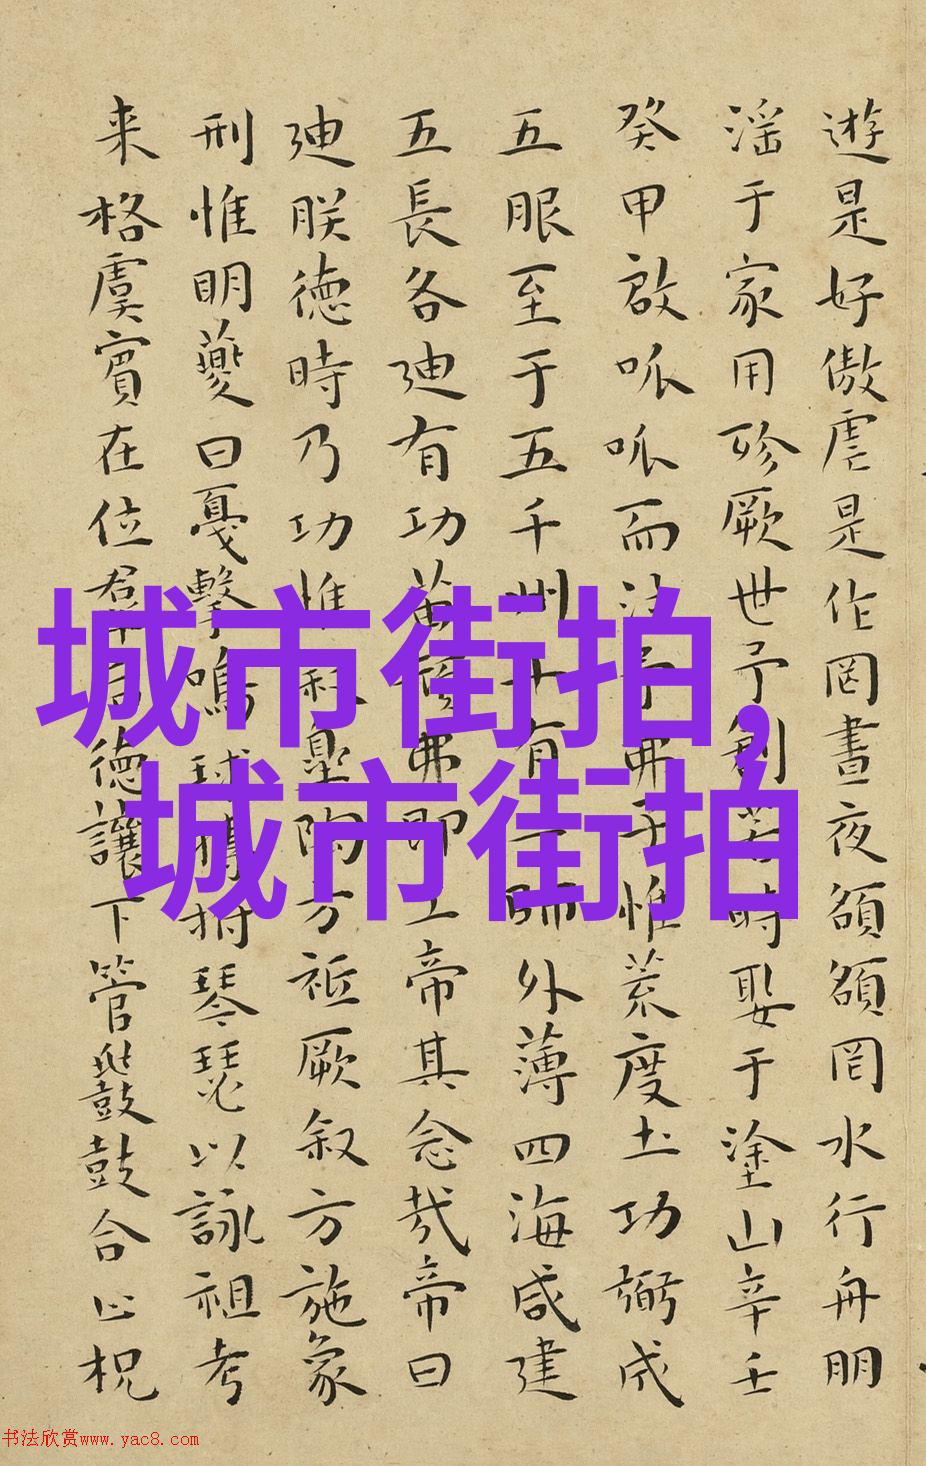 遊是好傲虐是作罔晝夜頟頟罔水行舟朋
淫于家用殄厥世予創若時娶于塗山辛壬
癸甲啟呱呱而泣予弗子惟荒度土功弼成
五服至于五千州十有二師外薄四海咸建
五長各迪有功苗頑弗即工帝其念哉帝曰
迪朕德時乃功惟叙皐陶方祗厥叙方施象
刑惟明夔曰戛擊鳴球搏拊琴瑟以詠祖考
来格虞賓在位羣后德讓下管鼗鼓合止柷
城市街拍,
城市街拍
书法欣赏www.yac8.com